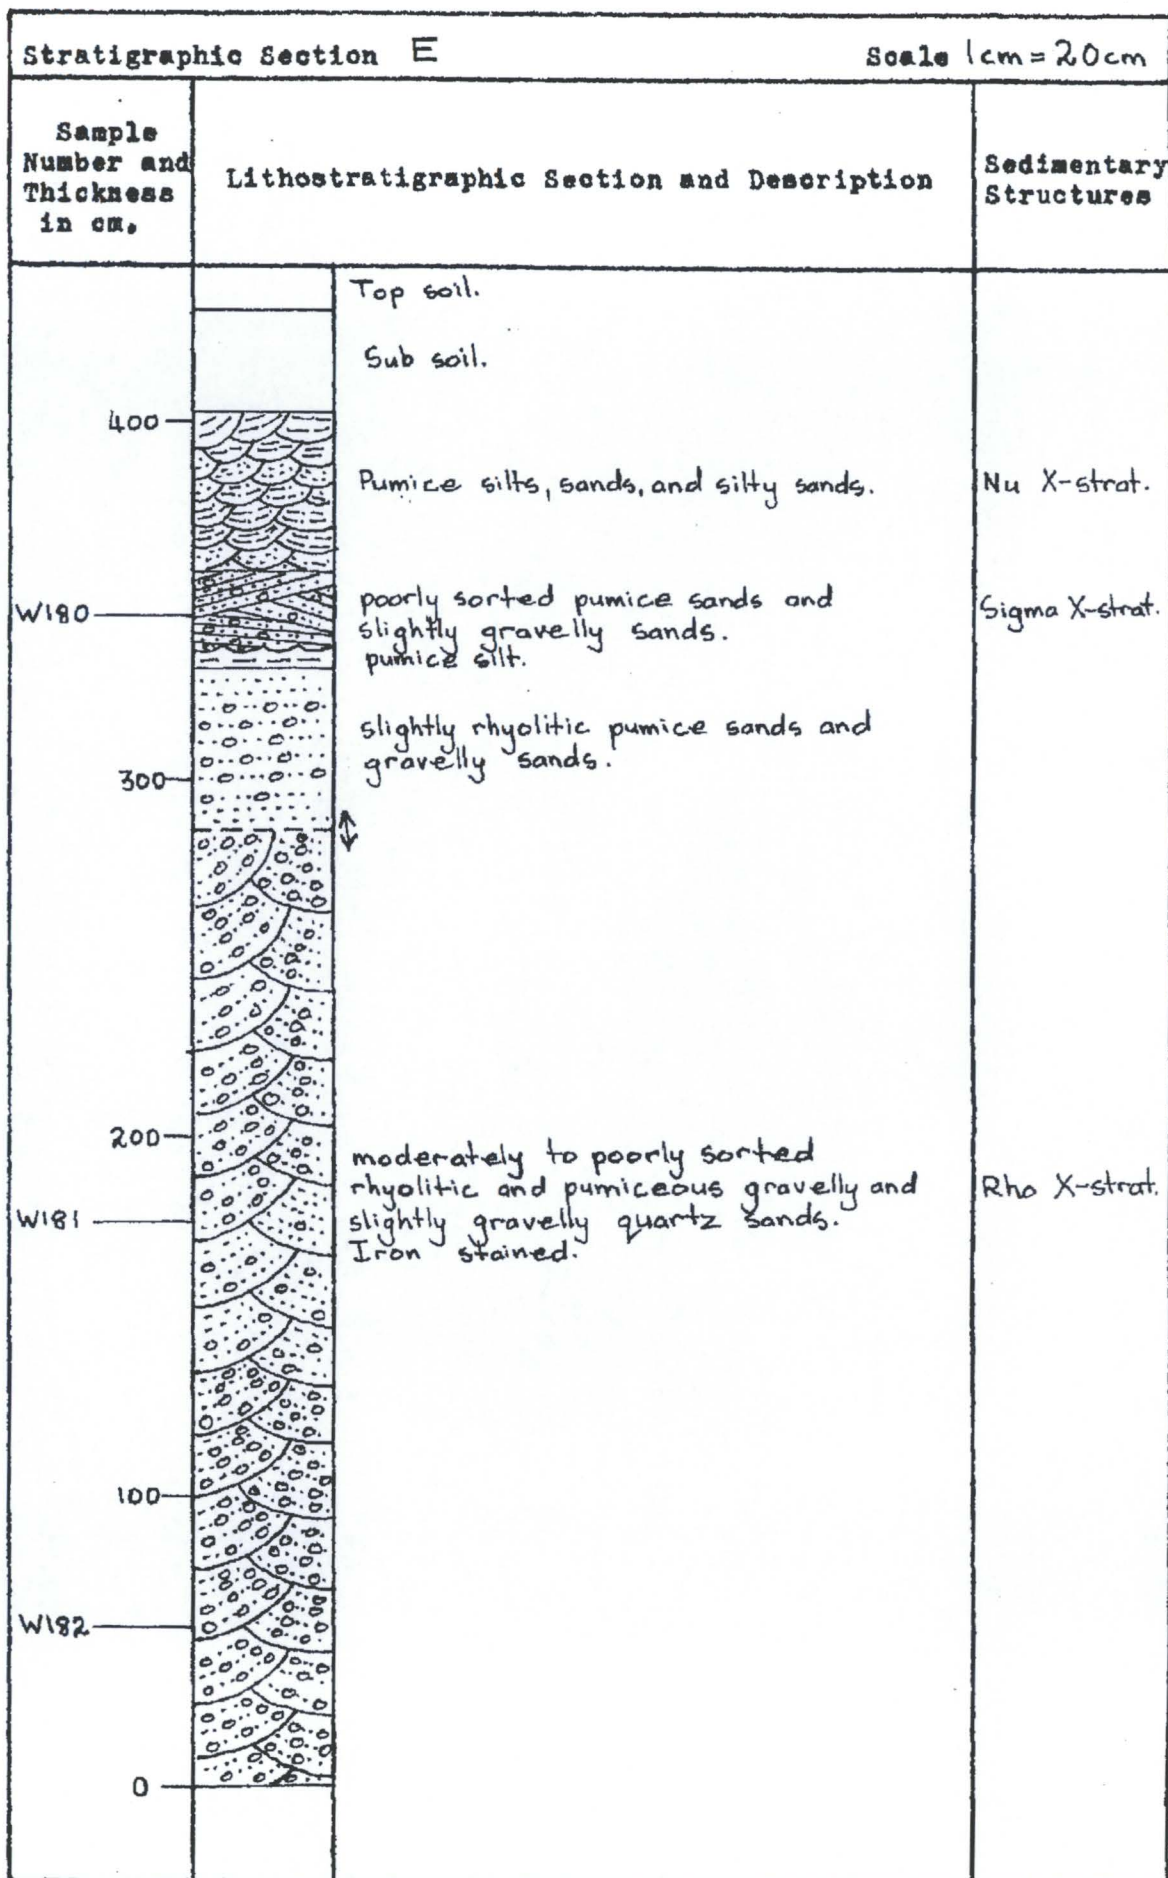 Stratigraphic Section E
Scale 1cm = 20cm
Sample
Number and
Thickness
in cm.
Lithostratigraphic Section and Description
Sedimentary
Structures
Top soil.
Sub soil.
400
Pumice silts, sands, and silty sands.
Nu X-strat.
W180
poorly sorted pumice sands and
slightly gravelly sands.
pumice silt.
Sigma X-strat.
slightly rhyolitic pumice sands and
gravelly sands.
300
200
moderately to poorly sorted
rhyolitic and pumiceous gravelly and
slightly gravelly quartz sands.
Iron stained.
W181
Rho X-strat.
100
W182
0